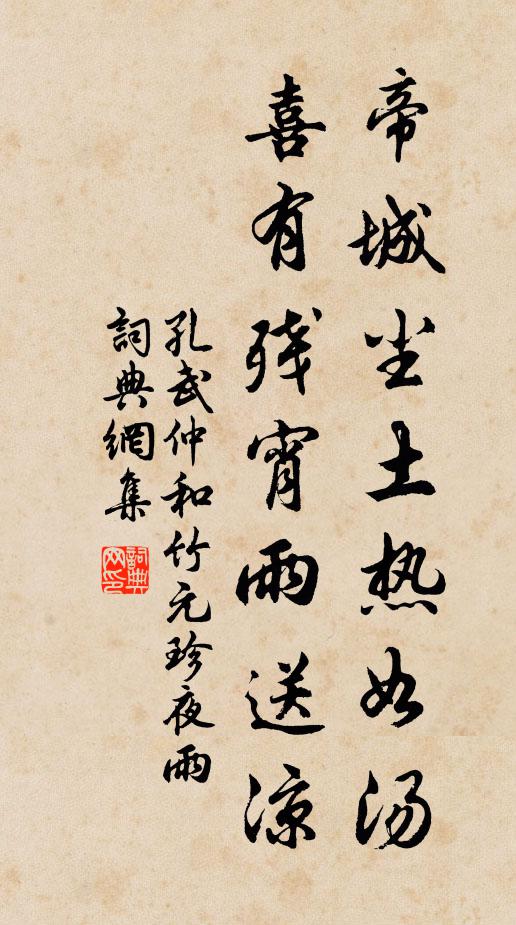 帝城尘土热如汤
喜有残宵雨送凉
孔武仲和竹元珍夜雨
詞典網集
詞典网印